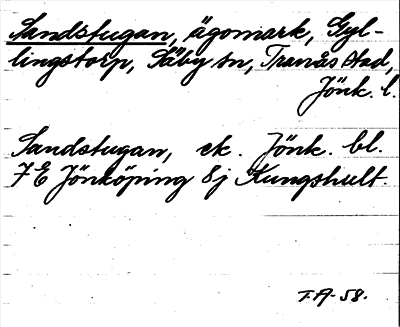 Sandstugan, ägomark, Gyl-
lingstorp, Säby sn, Tranås stad,
Jönk. l.
Sandstugan, ek. Jönk. bl.
7E Jönköping 8j Kungshult.
T.A-58.